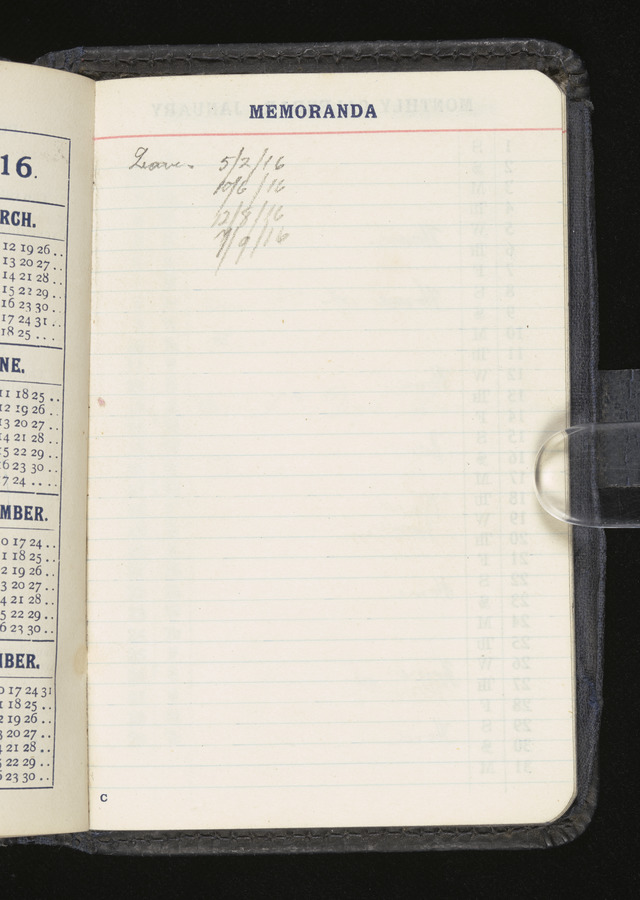 16.
RCH.
12 19 26 ..
13 20 27 ..
14 21 28 ..
15 22 29 ..
16 23 30 ..
17 24 31 ..
18 25 ...
NE.
11 18 25 ..
12 19 26 ..
13 20 27 ..
14 21 28 ..
15 22 29 ..
16 23 30 ..
17 24 ....
MBER.
0 17 24 ..
1 18 25 ..
2 19 26 ..
3 20 27 ..
4 21 28 ..
5 22 29 ..
6 23 30 ..
MBER.
0 17 24 31
1 18 25 ..
2 19 26 ..
3 20 27 ..
4 21 28 ..
5 22 29 ..
6 23 30 ..
MEMORANDA
Leave. 5/2/16
10/6/16
12/8/16
/9/16
C